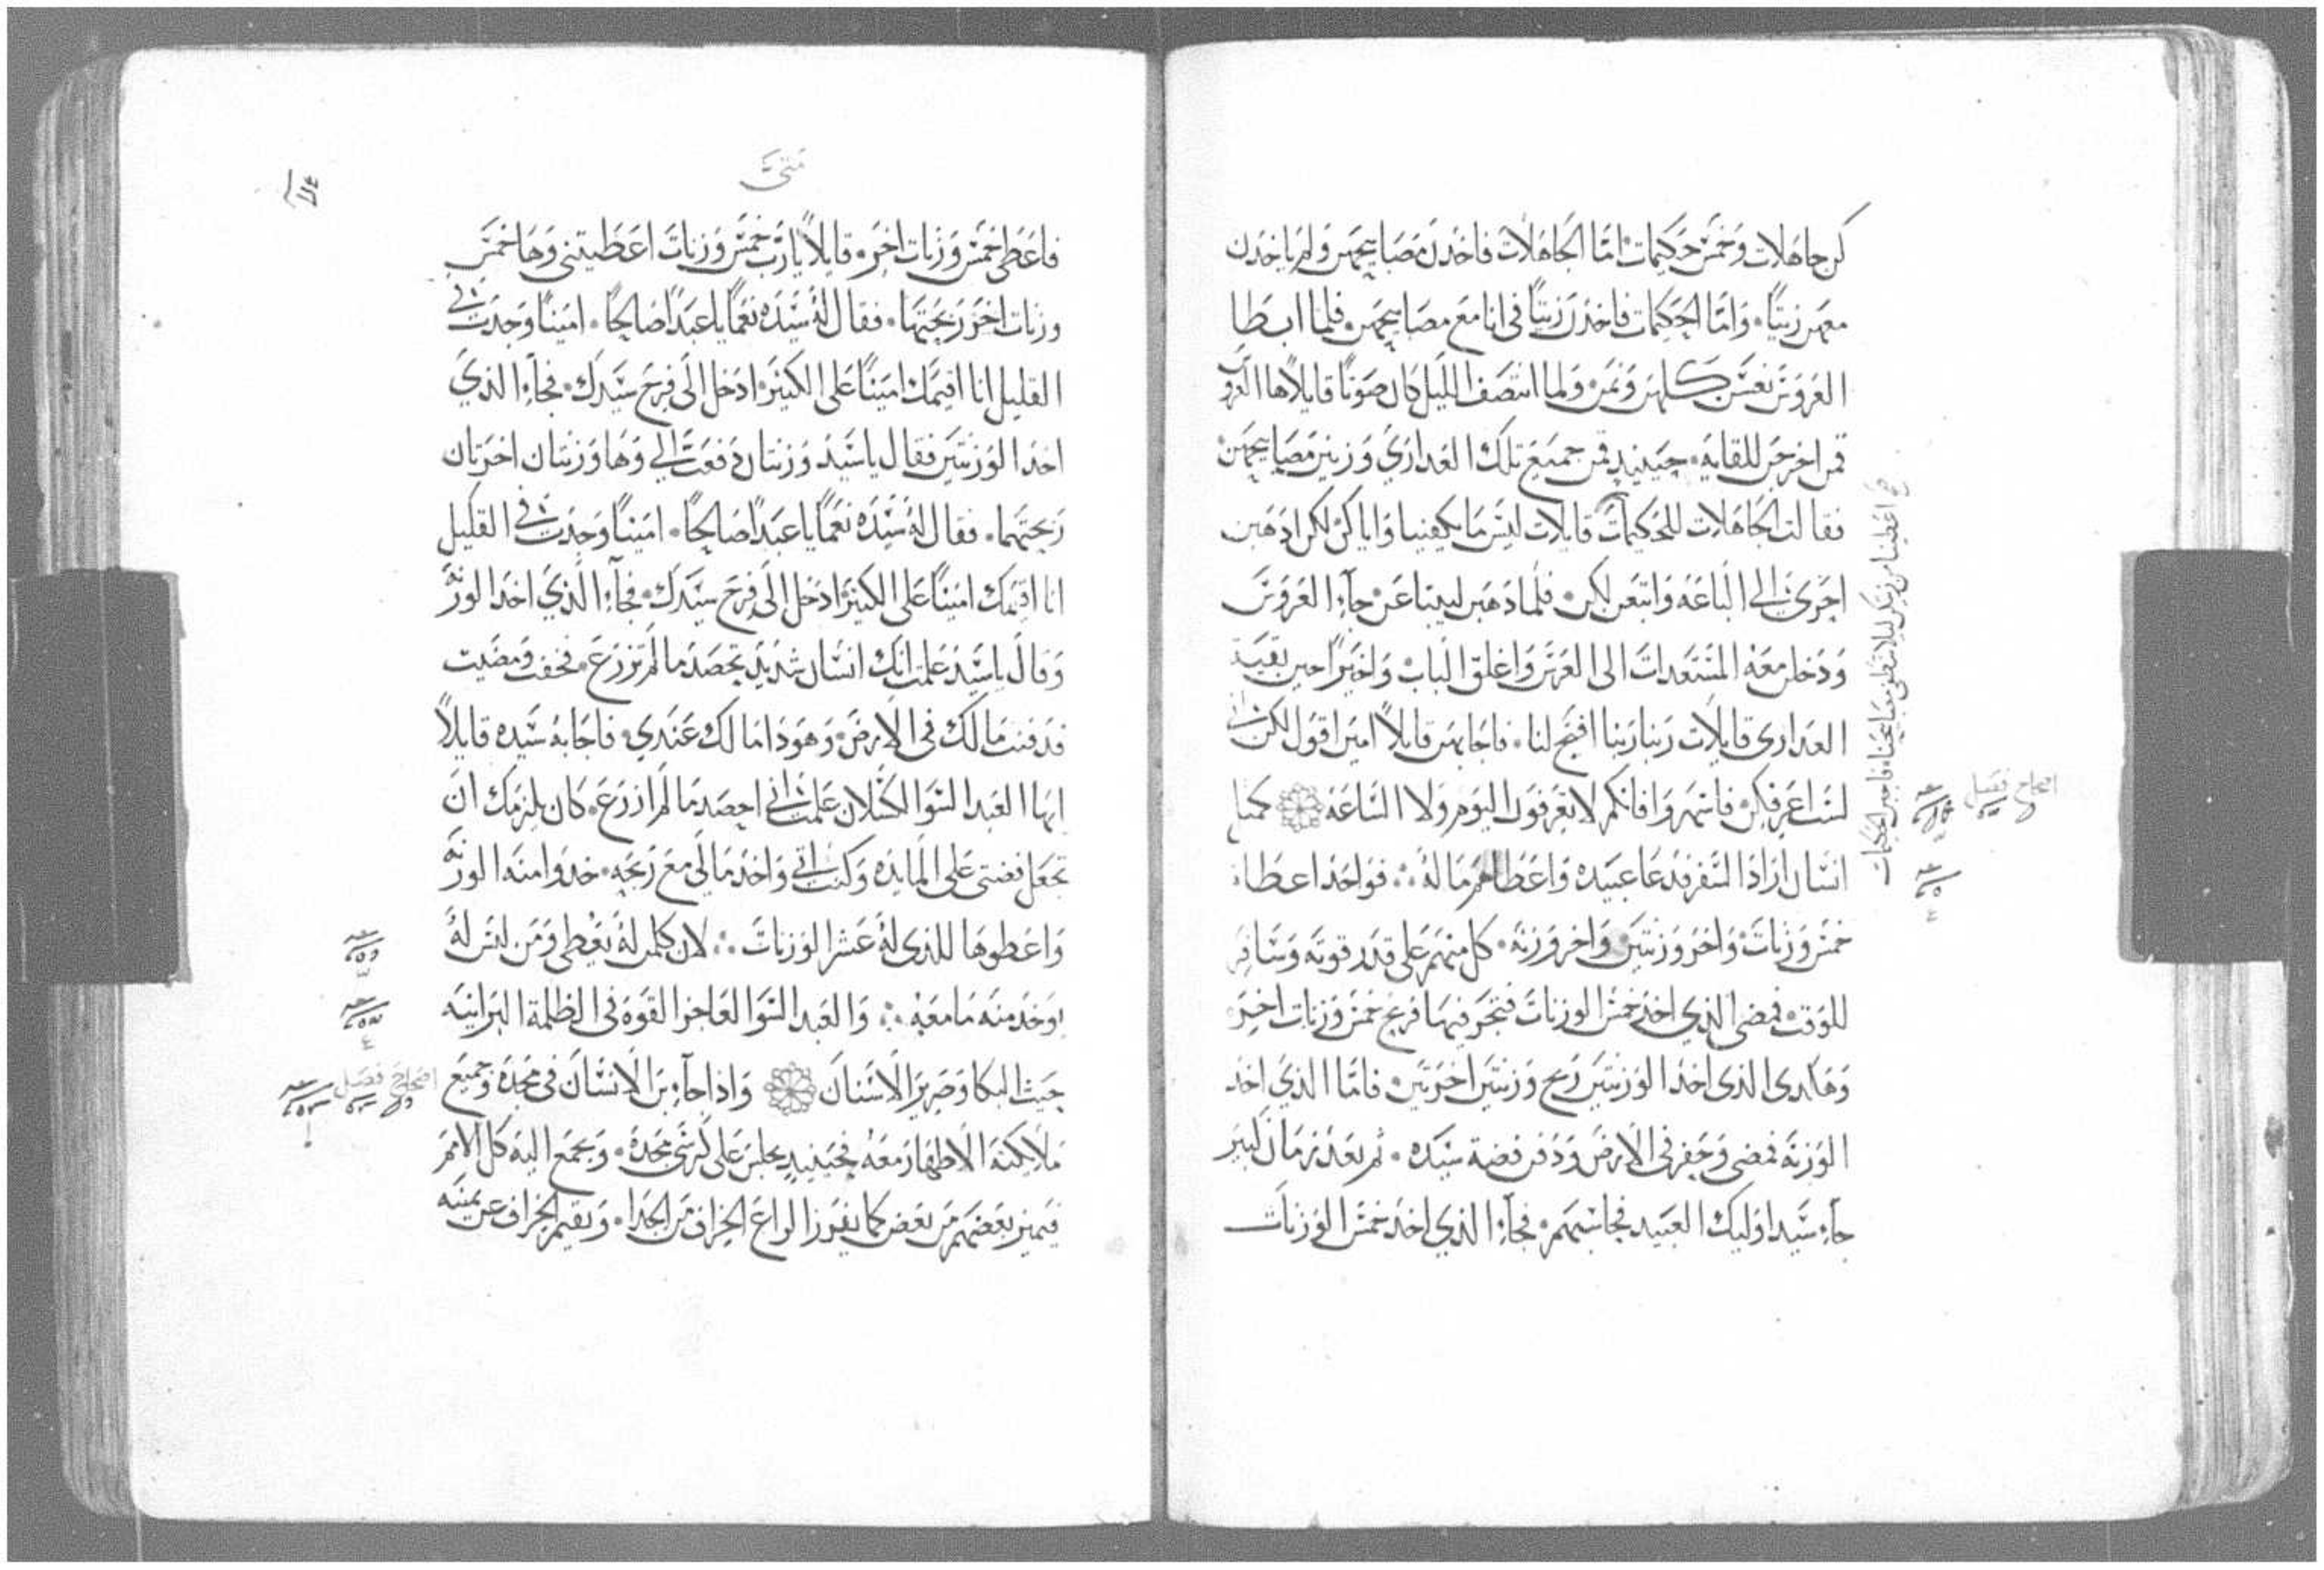 كن جاهلات وخمس حكيمات اما الجاهلات فاخدن مصابيحهن ولم ياخدن
معهن زيتاً وَامّا الحكيمات فاخدن زيتاً فى انا مع مصابيحهن فلما ابطا
العروس نعسن كلهن ونمن ولما انتصف الليل كان صوتاً قايلاً ها العروس
قمن اخرجن للقايه حينيد قمن جميع تلك العدارى وزينن مصابيحهن
فقالت الجاهلات للحكيمات
قايلات ليس ما يكفينا واياكن لكن ادهبن
اجرى الى الباعه وابتعن لكن فلما دهبن ليبتاعن جآء العروس
ودخلن معه المستعدات الى العرس واغلق الباب واخيراً حين بقية
العدارى قايلات ربنا ربنا افتح لنا فاجابهن قايلاً امين اقول لكن انى
لست اعرفكن فاسهروا فانكم لا تعرفون اليوم ولا الساعة كمثل
انسان اراد السفر فدعا عبيده واعطاهم ماله فواحد اعطاه
خمس وزنات واخر وزنتين واخر وزنه كل منهم على قدر قوته وسافر
للوقت فمضى الذي اخد خمس الوزنات فتجر فيها فربح خمس وزنات اخر
وهكدى الذى اخد الوزنتين ربح وزنتين اخرتين فامّا الذي اخد
الوزنة فمضى وحفر فى الارض ودفن فضة سيده ثم بعد زمان كبير
جآء سيد اوليك العبيد فحاسبهم فجآء الذي اخد خمس الوزنات
اعطينا من زيتكن ليلا تنطفى مصابيحنا فاجبن الحكيمات
اصحاح فصل
متى
فاعطى خمس وزنات اخر قايلاً يا رب خمس وزنات اعطيتنى وها خمس
وزنات اخر ربحتها فقال له سيده نعماً يا عبداً صالحاً اميناً وجدت فى
القليل انا اقيمك اميناً على الكبير ادخل الى فرح سيدك فجآء الذي
اخد الوزنتين فقال يا سيد وزنتان دفعت الي وها وزنتان اخرتان
ربحتهما فقال له سيده نعماً يا عبداً صالحاً اميناً وجدت فى القليل
انا اقيمك اميناً على الكبير ادخل الى فرح سيدك فجآء الذي اخد الوزنه
وقال يا سيد علمت انك انسان شديد تحصد ما لم تزرع فخفت ومضيت
فدفنت مالك فى الارض وهودا مالك عندي فاجابه سيده قايلاً
ايها العبد السوا الكسلان علمت انى احصد ما لم ازرع كان يلزمك ان
تجعل فضتى على المايده وكنت اتى واخد مالى مع ربحه خدوا منه الوزنه
واعطوها للذى له عشر الوزنات لان كلمن له يعطى ومن ليس له
يوخد منه ما معه والعبد السوا العاجز القوه فى الظلمة البرانيه
حيث البكا وصرير الاسنان واذا جآء بن الانسان فى مجده وجميع
ملايكته الاطهار معه فحينيد يجلس على كرسى مجده ويجمع اليه كل الامم
فيميز بعضهم من بعض كما يفرز الراع الخراف من الجدا ويقيم الخراف عن يمينه
اصحاح فصل